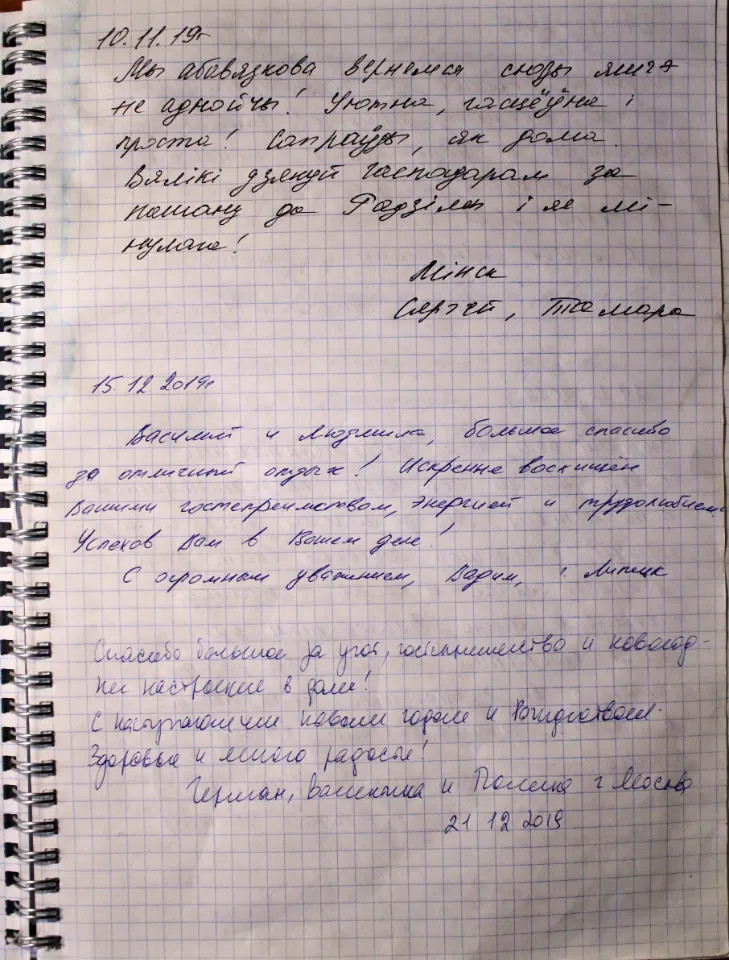 10.11.19г
Мы абавязкова вернемся сюды яшчэ
не аднойчы! Утютна, гасцёўна і
проста! Сапраўды, як дома.
Вялікі дзякуй гаспадарам за
пашану да Радзімы і яе мі-
нулага!
Мінск
Сяргей, Тамара
15.12.2019г.
Василий и Людмила, большое спасибо
за отличный отдых! Искренне восхищён
Вашими гостеприимством, энергией и трудолюбием.
Успехов Вам в Вашем деле!
С огромным уважением, Вадим, г. Липецк
Спасибо большое за уют, гостеприимство и новогод-
нее настроение в доме!
С наступающим новым годом и Рождеством.
Здоровья и много радости!
Герман, и Полина г Москва
21 12 2019